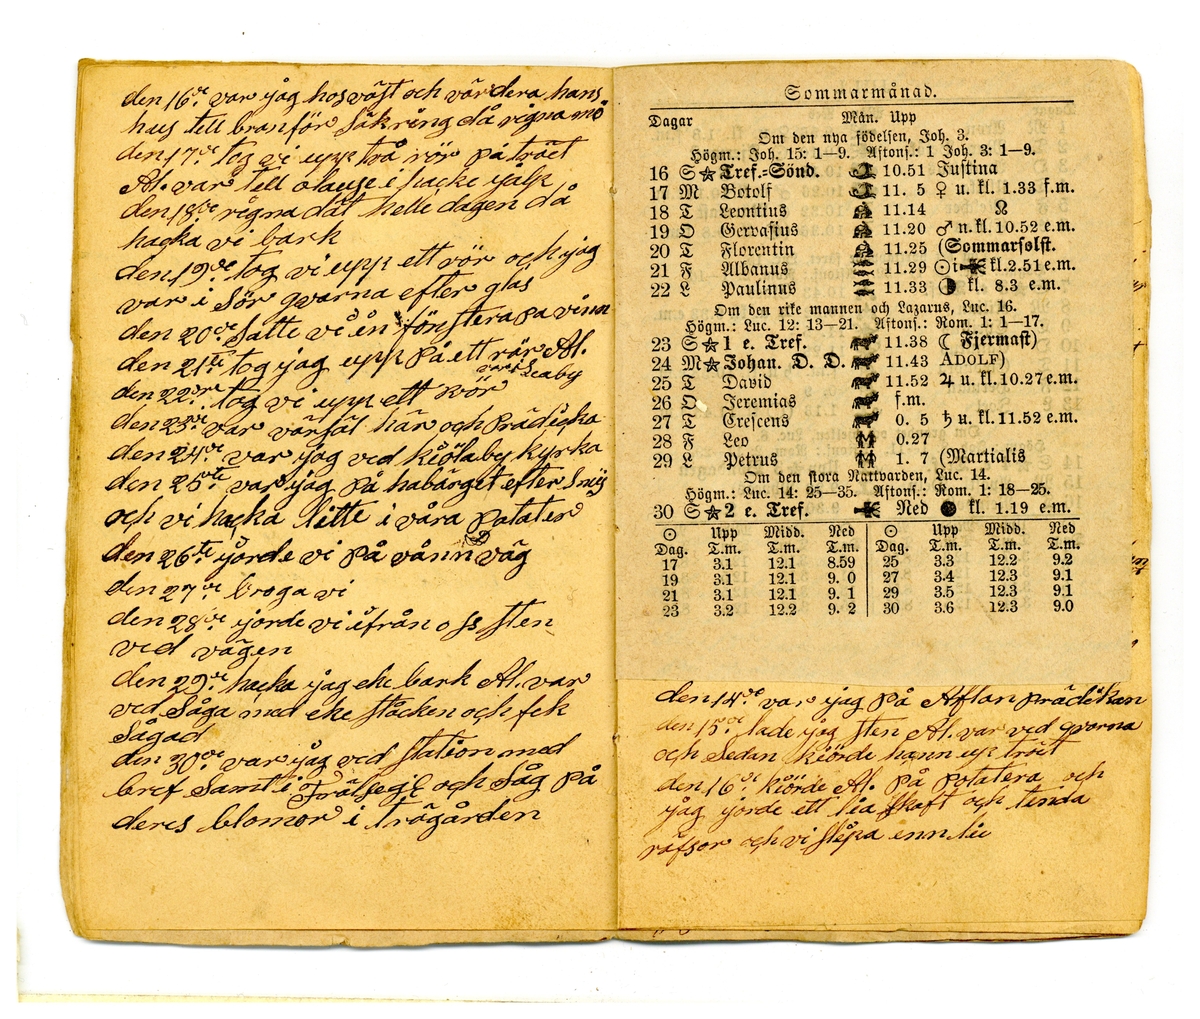 den 16de var jåg hos väst och värdera hans
hus tell branförsäkring då rigna mö
den 17de tog vi upp trå rör på träet
Al. var tell olauge i hacke
den 18de rigna dät helle dagen då
hacka vi bark
den 19de tog vi upp ett rör och jag
var i Sör qvarna efter glas
den 20de Satte vi en fönstera på vinn
den 21te tog jag upp på ett rör Al.
var i Leaby
den 22dre tog vi upp ett rör
den 23de var här och prädicka
den 24de var jag ved kiölaby kyrka
den 25te var jåg på habärget efter Snus
och vi hacka litte i våra Potater
den 26te jorde vi på vånn väg
den 27de broga vi
den 28de jorde vi ifrån oss sten
ved vägen
den 29de hacka jag eke bark Al. var
ved Såga med eke ståcken och fek
Sågad
den 30de var jåg ved station med
bref Samt i Frälsegl och Såg på
deres blomor i trägården
Sommarmånad.
Dagar Mån. Upp
Om den nya födelsen, Joh. 3.
Högm.: Joh. 15: 1—9. Aftons.: 1 Joh. 3: 1—9.
16 S☆Tref.=Sönd. 10.51 Justina
17 M Botolf 11. 5 ♀ u. kl. 1.33 f.m.
18 T Leontius 11.14 ☊
19 O Gervasius 11.20 ♂ n. kl. 10.52 e.m.
20 T Florentin 11.25 (Sommarsolst.
21 F Albanus 11.29 ☉ i kl. 2.51 e.m.
22 L Paulinus 11.33 ◑ kl. 8.3 e.m.
Om den rike mannen och Lazarus, Luc. 16.
Högm.: Luc. 12: 13—21. Aftons.: Rom. 1: 1—17.
23 S☆1 e. Tref. 11.38 ☾ Fjermast)
24 M☆Johan. D. D. 11.43 ADOLF)
25 T David 11.52 ♃ u. kl. 10.27 e.m.
26 O Jeremias f.m.
27 T Crescens 0. 5 ♄ u. kl. 11.52 e.m.
28 F Leo 0.27
29 L Petrus 1. 7 (Martialis
Om den stora Nattvarden, Luc. 14.
Högm.: Luc. 14: 25—35. Aftons.: Rom. 1: 18—25.
30 S☆2 e. Tref. Ned ● kl. 1.19 e.m.
☉ Upp Midd. Ned ☉ Upp Midd. Ned
Dag. T.m. T.m. T.m. Dag. T.m. T.m. T.m.
17 3.1 12.1 8.59 25 3.3 12.2 9.2
19 3.1 12.1 9. 0 27 3.4 12.3 9.1
21 3.1 12.1 9. 1 29 3.5 12.3 9.1
23 3.2 12.2 9. 2 30 3.6 12.3 9.0
den 14de var jag på Aftan prädikan
den 15de lade jeg sten Al. var ved qvarna
och Sedan kiörde hann up träet
den 16de kiörde Al. på potatera och
jåg jorde ett lia skaft och tinda
räfsor och vi slepa enn lie